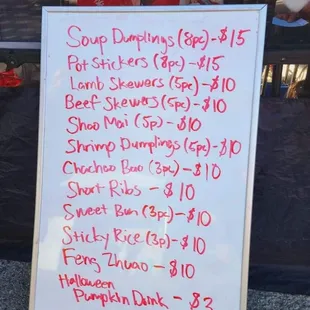 Soup Dumplings (8pc) - $15
Pot Stickers (8pc) - $15
Lamb Skewers (5pc) - $10
Beef Skewers (5pc) - $10
Shao Mai (5p) - $10
Shrimp Dumplings (5pc) - $10
Chachao Bao (3pc) - $10
Short Ribs - $10
Sweet Bun (3pc) - $10
Sticky Rice (3p) - $10
Feng Zhuao - $10
Halloween
Pumpkin Drink - $3